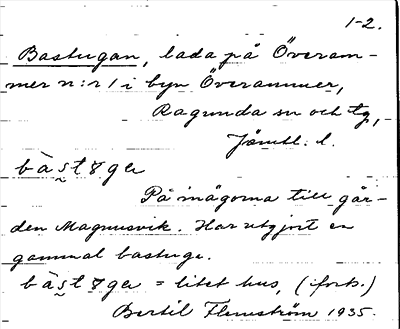 1-2.
Bastugan, lada på Överam-
mer n:r 1 i byn Överammer,
Ragunda sn och tg,
Jämtl. l.
bàstuga
På inägorna till går-
den Magnusvik. Har utgjort en
gammal bastuge.
bàstuga = litet hus, (forts.)
Bertil Flemström 1935.